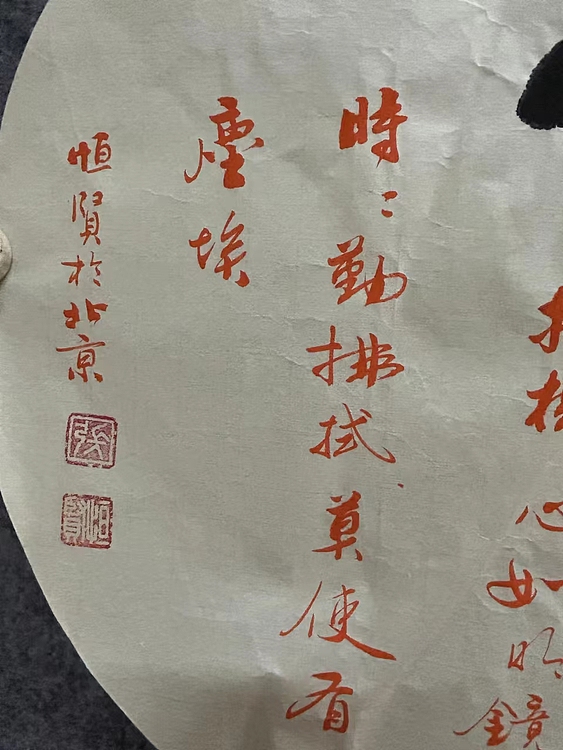 心如明鏡
時〻勤拂拭莫使有
塵埃
恒賢於北京
恒賢